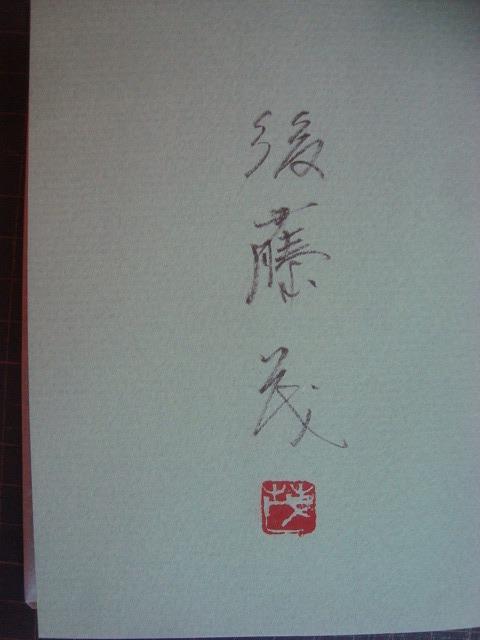 後藤茂
茂